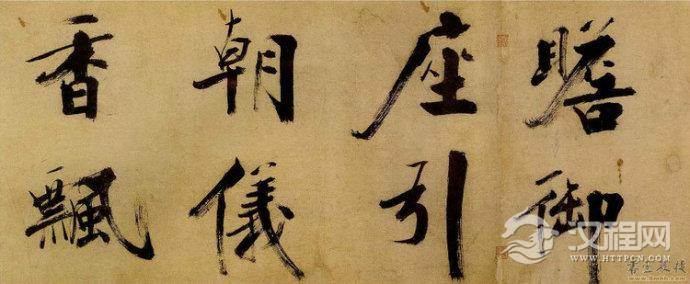 瞻御
座引
朝儀
香飄
汉程网
WWW.HTTPCN.COM